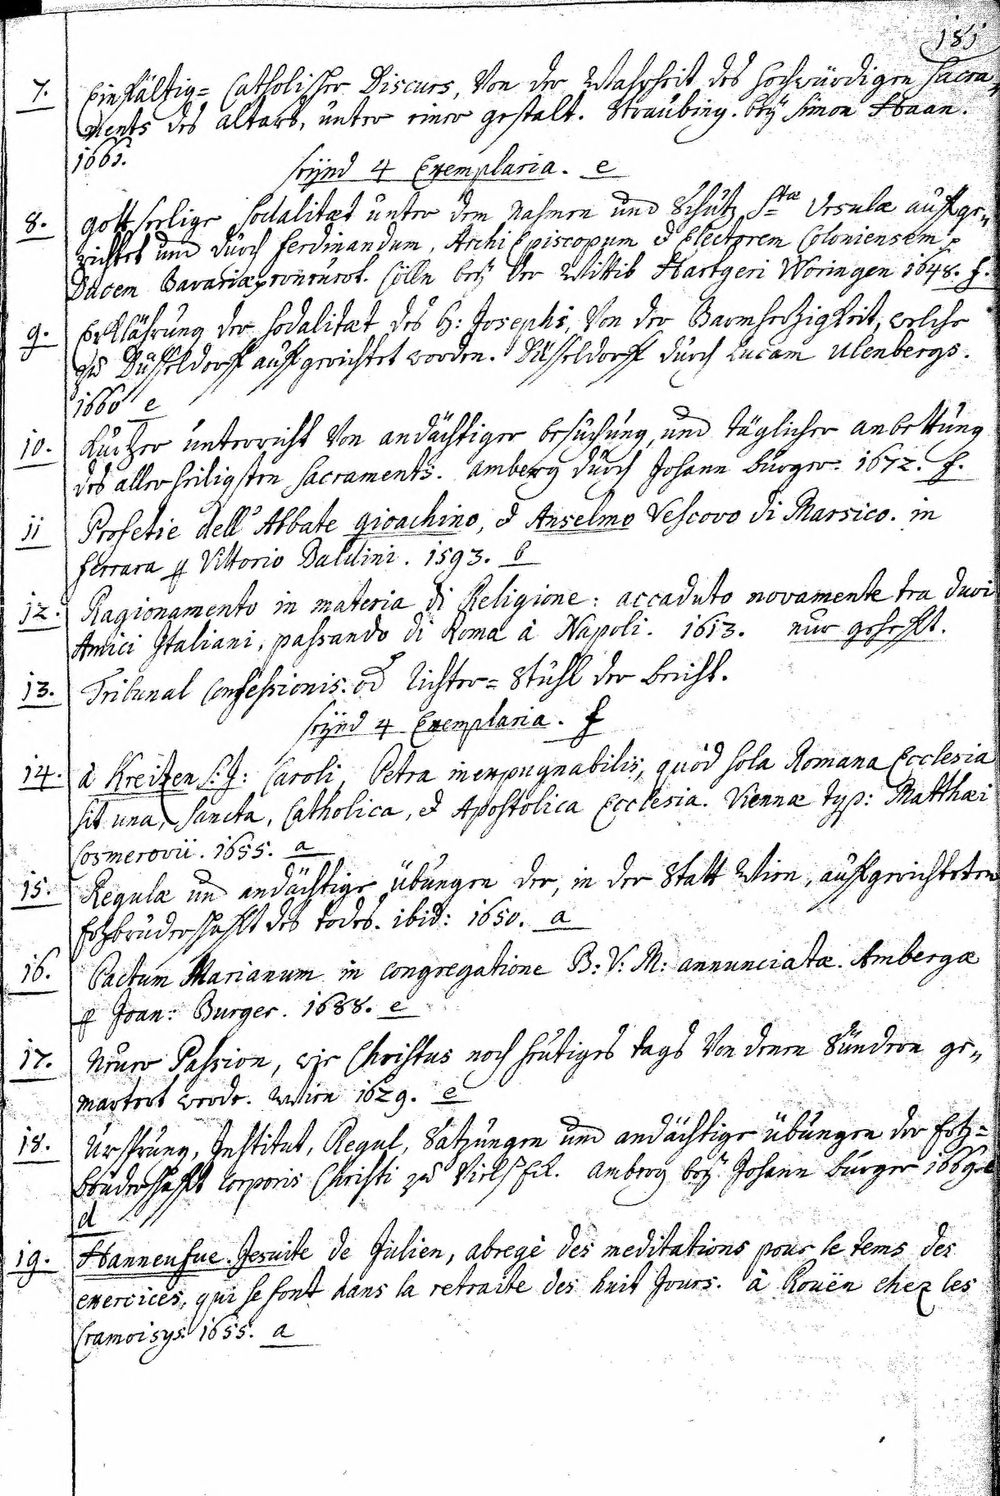 181
7. Einfältig= Catholischer Discurs, Von der Wahrheit des hochwürdigen Sacra,,
ments des altars, unter einer gestalt. Straubing. beÿ Simon Haan.
1661.
seÿnd 4 Exemplaria. e
8. gottseelige Sodalitæt unter dem nahmen und Schutz Stæ Ursulæ auffge,,
richtet und durch Ferdinandum, ArchiEpiscopum & Electorem Coloniensem
Ducem Bavariæ Cölln beÿ der Wittib Hartgeri Woringen 1648. f.
9. Erklährung der Sodalitæt des H: Josephi, Von der Barmhertzigkeit, welche
zu Düsseldorff auffgerichtet worden. Düsseldorff durch Lucam Ulenbergs.
1660 e
10. Kurtzer unterricht Von andächtiger besuchung, und täglicher anbettung
des allerheiligsten Sacraments. Amberg durch Johann Burger. 1672. f.
11 Profetie dell' Abbate gioachino, & Anselmo Vescovo di Marsico. in
Ferrara p Vittorio Baldini. 1593. b
12. Ragionamento in materia di Religione: accaduto novamente tra duoi
Amici Italiani, passando di Roma à Napoli. 1613. nur gehefft.
13. Tribunal Confessionis. od Richter=Stuhl der beicht.
seÿnd 4 Exemplaria. f
14. à Kreitzen S: J: Caroli, Petra inexpugnabilis, quòd sola Romana Ecclesia
sit una, Sancta, Catholica, & Apostolica Ecclesia. Viennæ typ: Matthæi
Cosmerovii. 1655. a
15. Regulæ und andächtige übungen der, in der Statt Wien, auffgerichteten
Ertzbruderschafft des todes. ibid: 1650. a
16. Pactum Marianum in congregatione B: V: M: annunciatæ. Ambergæ
p Joan: Burger. 1688. e
17. Neuer Passion, wie Christus noch heutiges tags Von denen Sündern ge,,
martert werde. Wien 1629. e
18. Ursprung, Institut, Regul, Satzungen und andächtige übungen der Ertz=
bruderschafft Corporis Christi zu Amberg beÿ Johann Burger 1669.
d
19. Hanneufve Jesuite de Julien, abregè des meditations pour le tems des
exercices, qui se font dans la retraite des huit Jours. à Rouën chez les
Cramoisys 1655. a